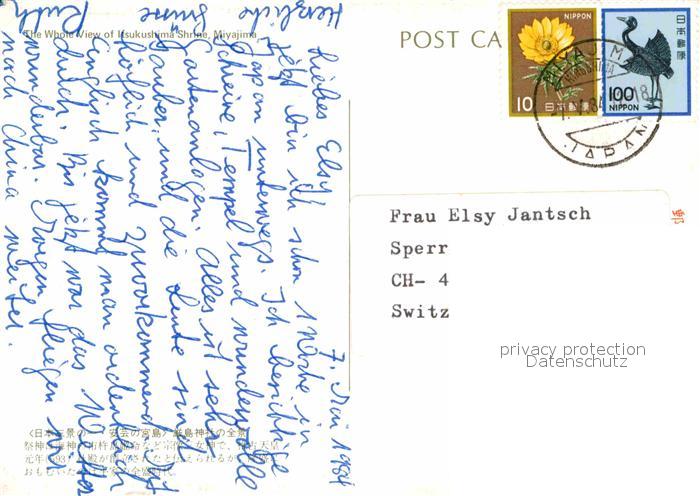 The Whole View of Itsukushima Shrine, Miyajima
POST CA
NIPPON
10
日本郵便
日本郵便
100
NIPPON
MIYAJIMA
HIROSHIMA
JAPAN
Frau Elsy Jantsch
Sperr
CH- 4
Switz
privacy protection
Datenschutz
7. Mai 1984
Liebes Elsy
Jetzt bin ich schon 1 Woche in
Japan unterwegs. Ich besichtige
Schreine, Tempel und wundervolle
Gartenanlagen. Alles ist sehr
sauber, und die Leute sind
höflich und zuvorkommend. Mit
Englisch kommt man ordentlich
durch. Bis jetzt war das Wetter
wunderbar. Morgen fliegen wir
nach China weiter.
Herzliche Grüsse
Ruth
〈日本三景の 安芸の宮島〉厳島神社の全景